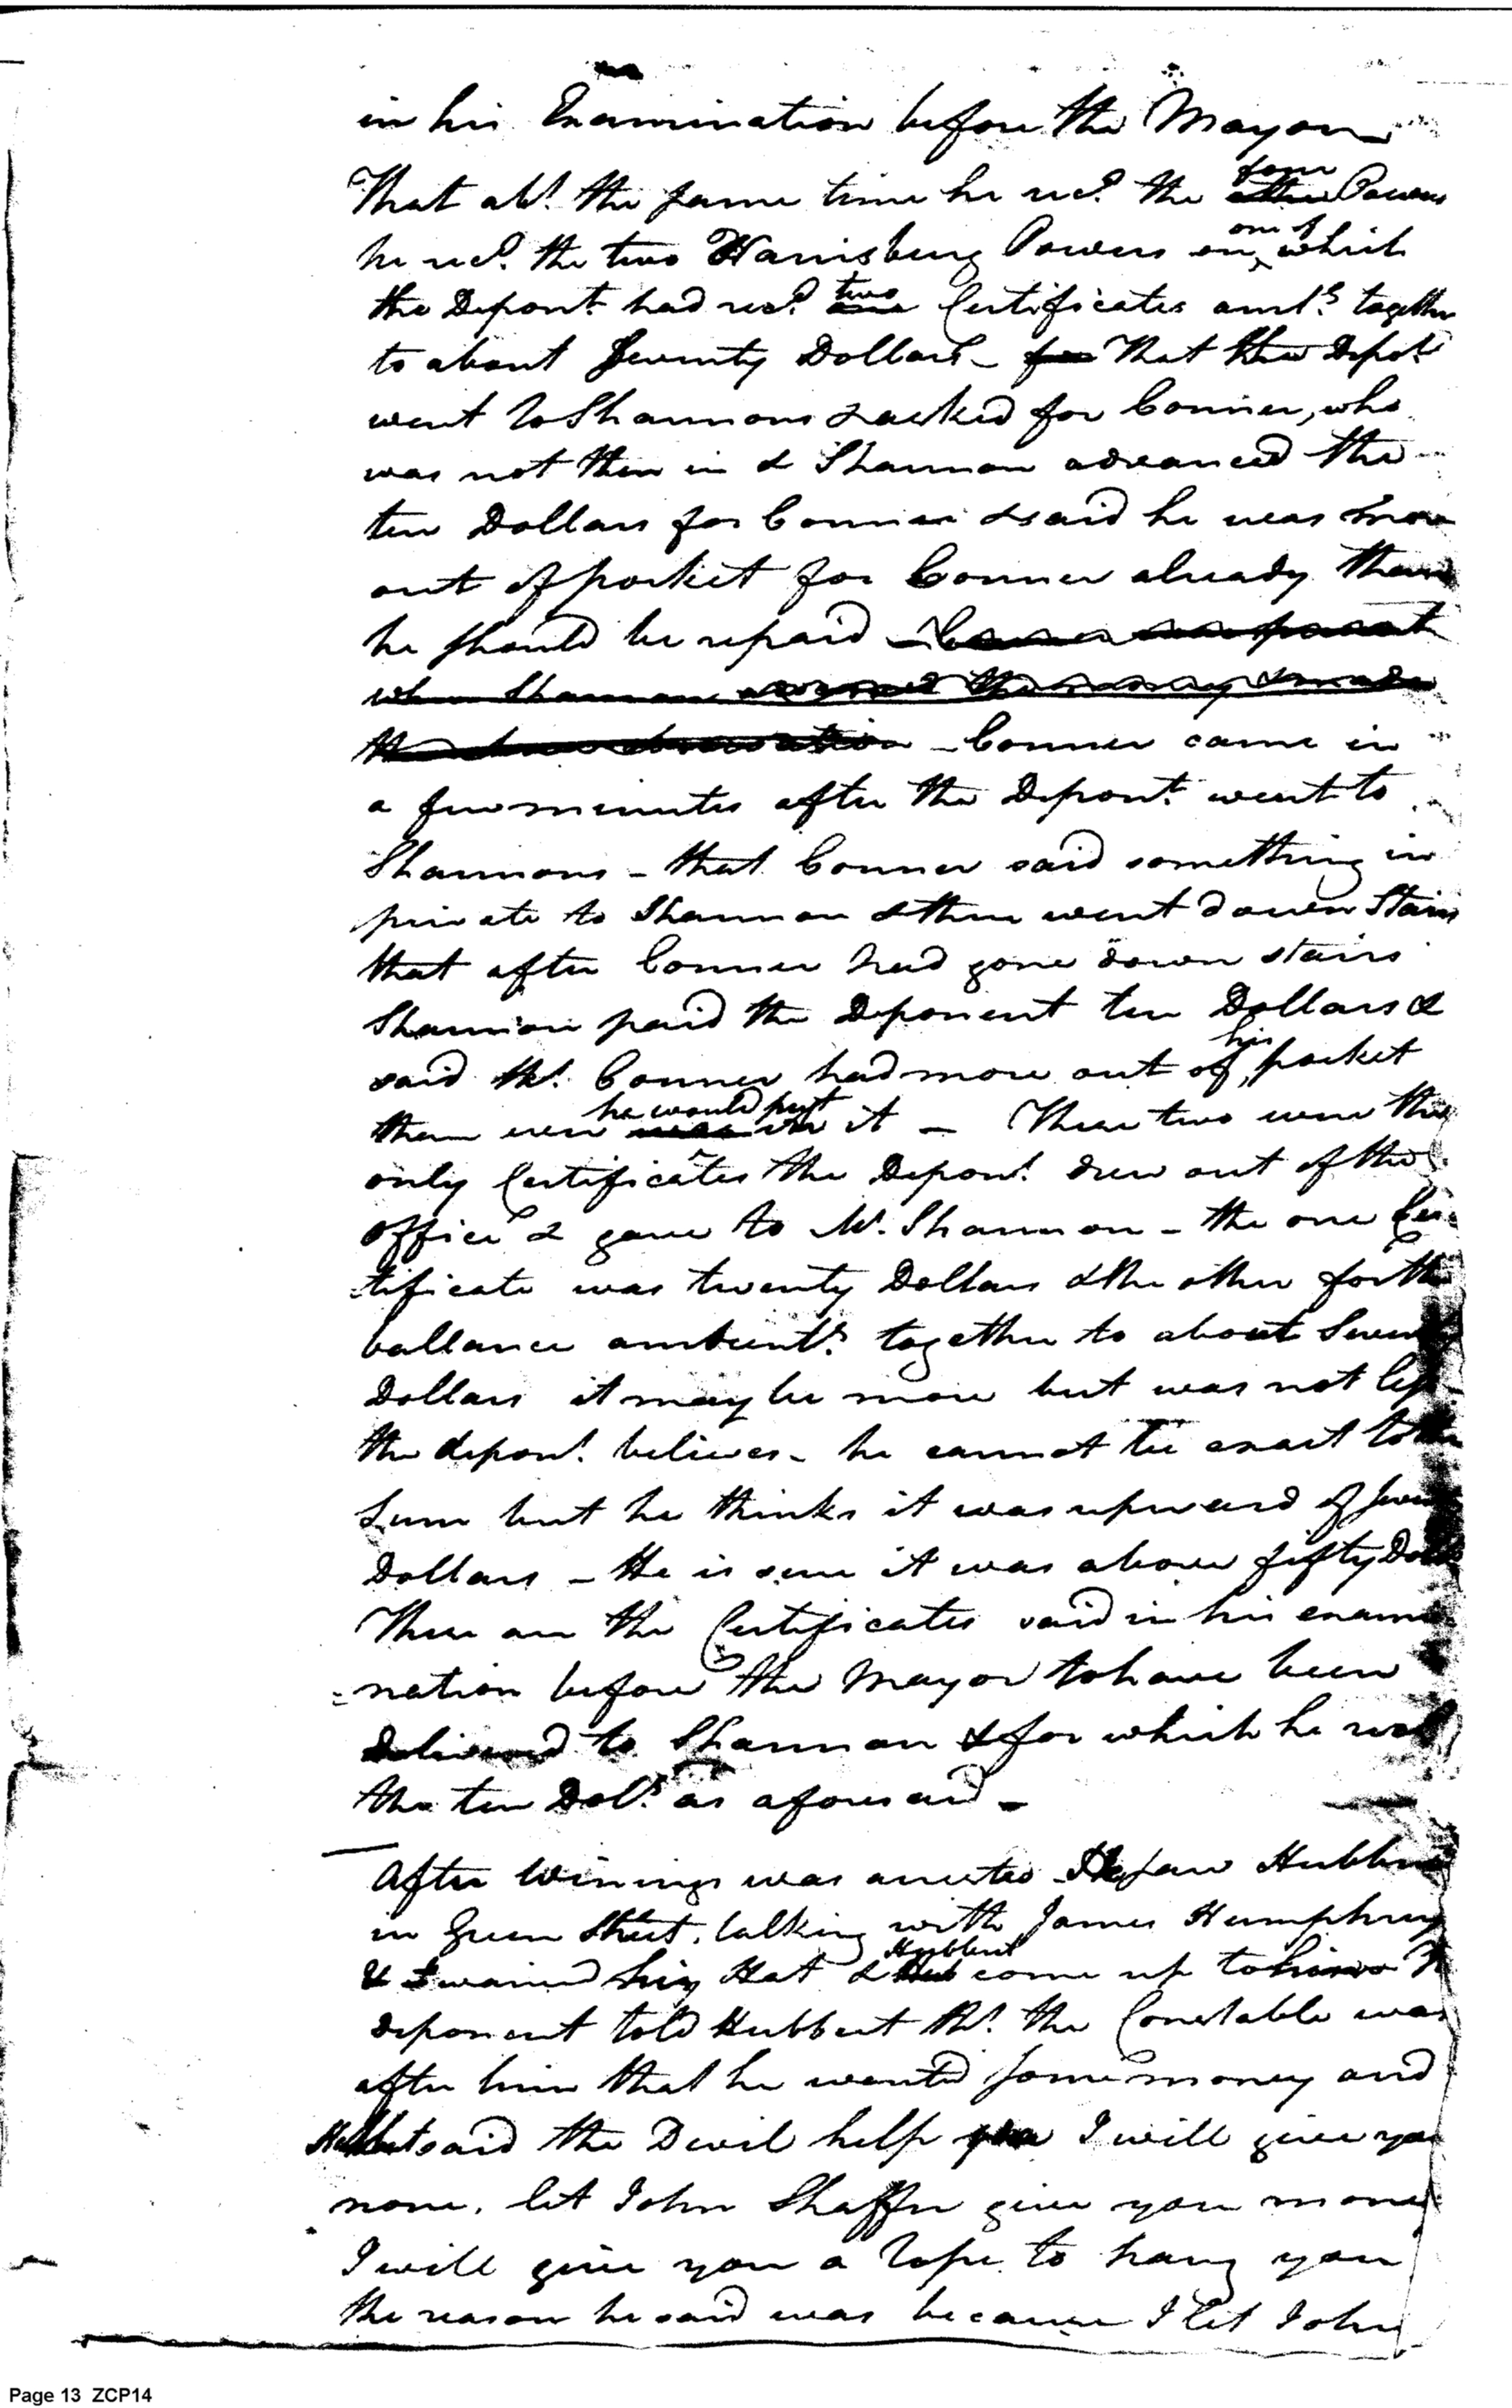 in his Examination before the Mayor
That abt. the same time he recd. the four other Powers
he recd. the two Harrisburg Powers on one of which
the Depont. had recd. two one Certificates amtg. together
to about Seventy Dollars - for That the Depot.
went to Shannons & asked for Conner, who
was not then in & Shannon advanced the
ten Dollars for Conner & said he was more
out of pocket for Conner already than
he should be repaid - Conner was present
when Shannon advanced the money & made
the above observation - Conner came in
a few minutes after the Depont. went to
Shannons - that Conner said something in
private to Shannon & then went down Stairs
that after Conner had gone down stairs
Shannon paid the Deponent ten Dollars &
said tht. Conner had more out of his pocket
than ever he would put in it - These two were the
only Certificates the Depont. drew out of the
Office & gave to Mr. Shannon - the one Cer-
tificate was twenty Dollars & the other for the
ballance amountg. together to about Seventy
Dollars it may be more but was not less
the depont. believes - he cannot be exact to the
Sum but he thinks it was upward of seventy
Dollars - He is sure it was above fifty Dolls
These are the Certificates said in his exami
=nation before the Mayor to have been
delivered to Shannon & for which he recd
the ten Dolls. as aforesaid -
After Winings was arrested He saw Hubbert
in Green Street, talking with James Humphreys
& waived his Hat & Hubbert come up to him The
deponent told Hubbert tht. the Constable was
after him that he wanted some money and
Hubbert said the Devil help you I will give you
none, let John Shaffer give you money
I will give you a Rope to hang you
the reason he said was because I let John
Page 13 ZCP14